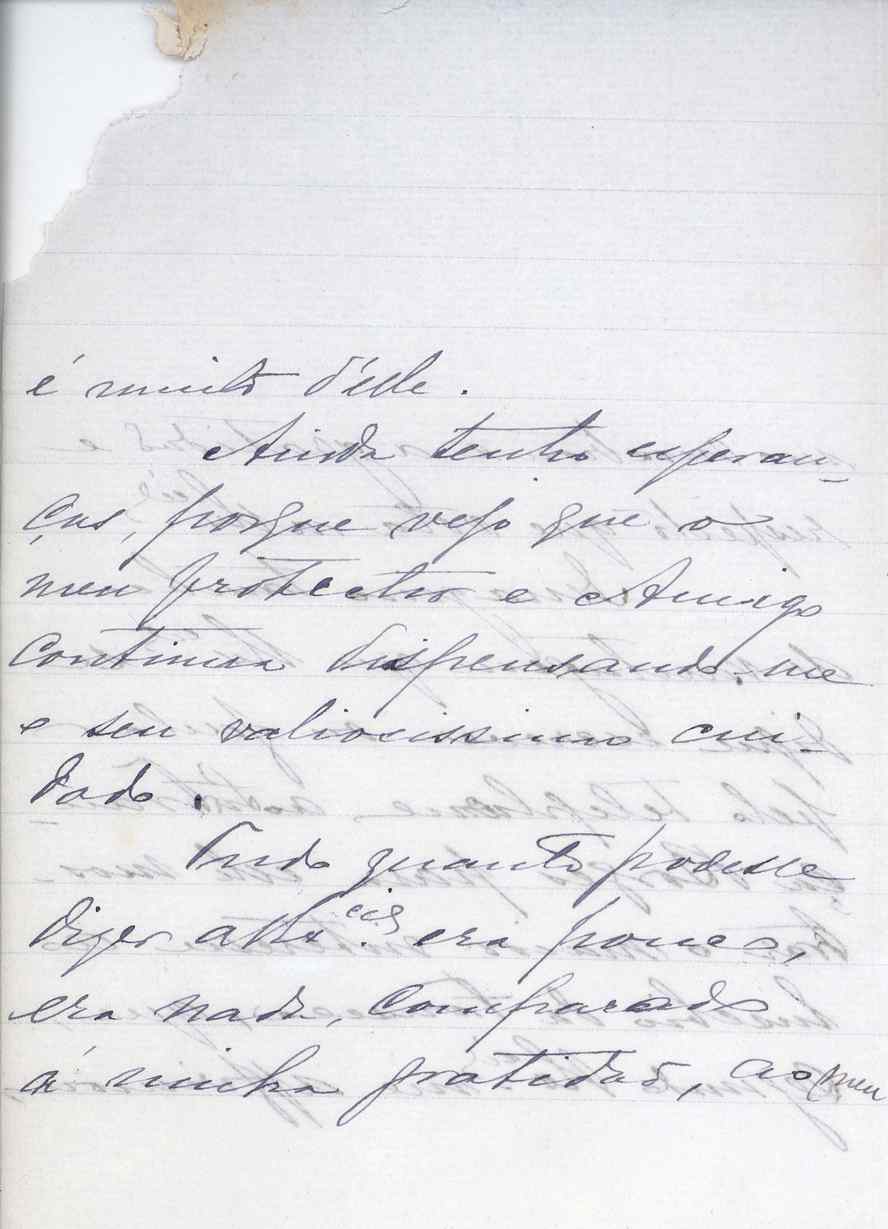 é muito d'elle.
Ainda tenho esperan-
ças, porque vejo que o
meu protector e Amigo
continua dispensando-me
o seu valiosissimo cui-
dado.
Tudo quanto podesse
dizer a V.a Ex.cia era pouco,
era nada, comparado
á minha gratidão, ao meu